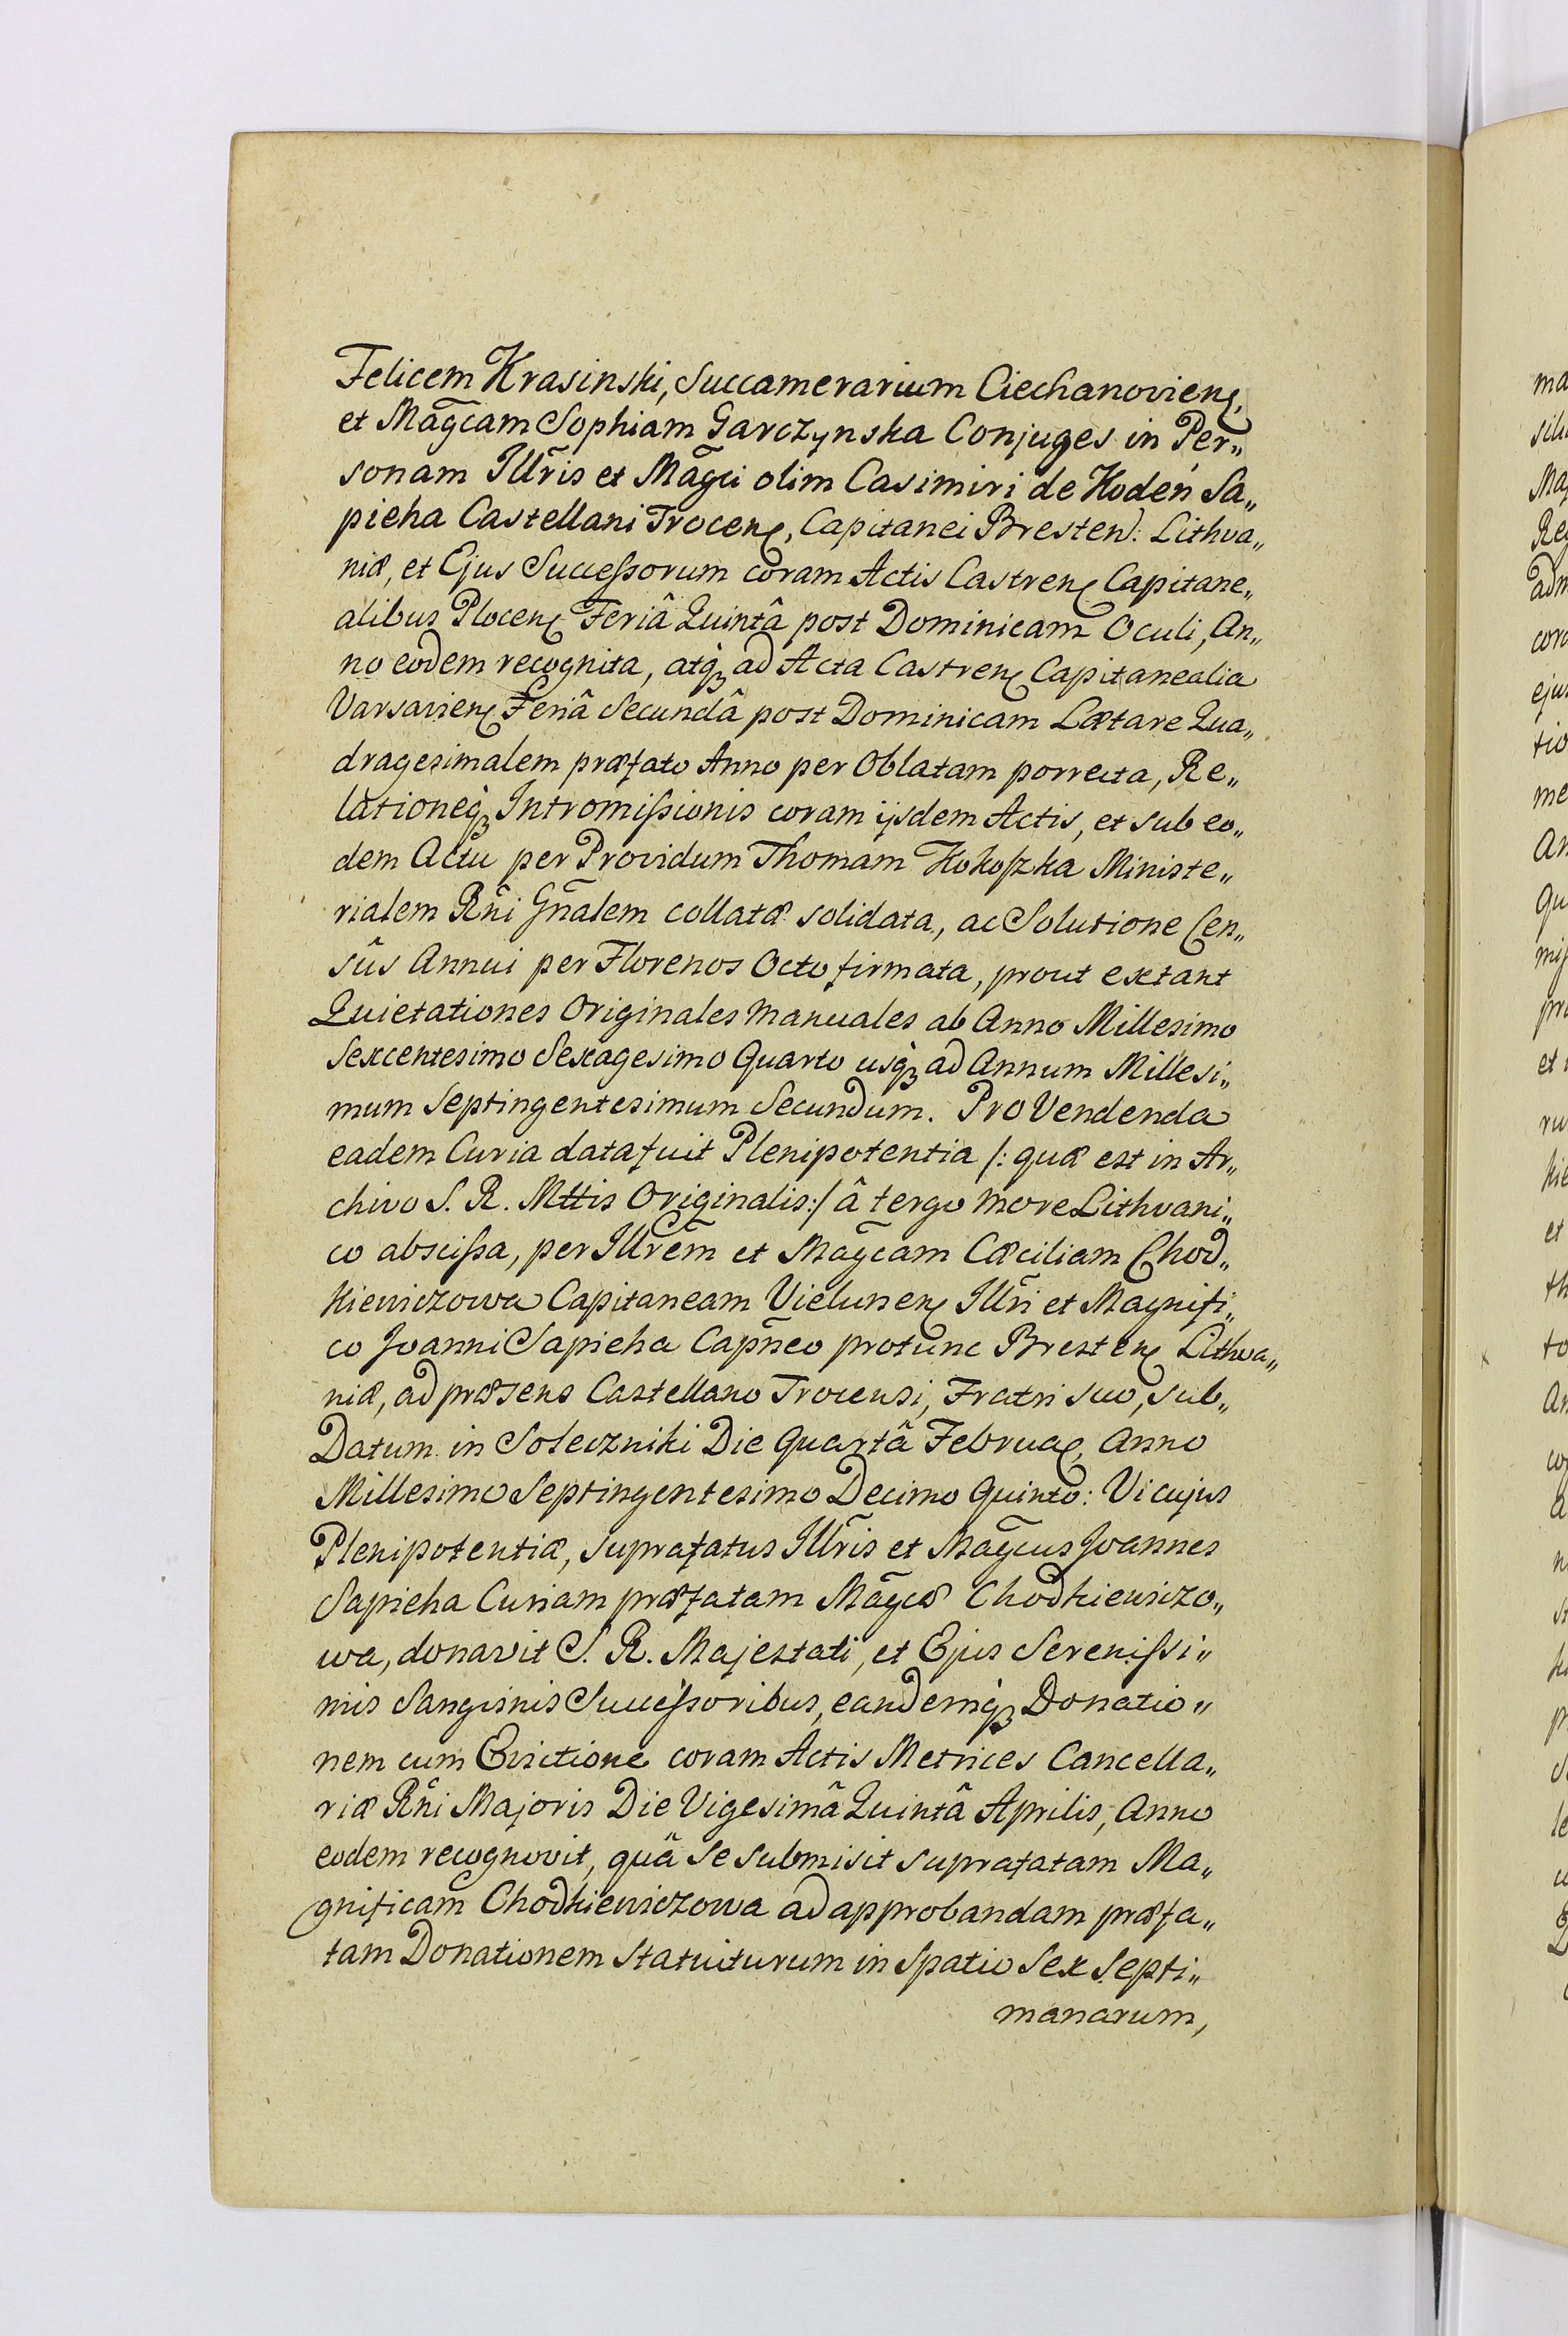 Felicem Krasinski, Succamerarium Ciechanovienꝭ,
et Magcam Sophiam Garczynska Conjuges in Per„
sonam Illris et Magci olim Casimiri de Kodeń Sa„
pieha Castellani Trocenꝭ, Capitanei Bresten: Lithva„
niæ, et Ejus Succeſsorum coram Actis Castrenꝭ Capitane„
alibus Plocenꝭ Feriâ Quintâ post Dominicam Oculi, An„
no eodem recognita, atqꝫ ad Acta Castrenꝭ Capitanealia
Varsavienꝭ Feriâ Secundâ post Dominicam Lætare Qua„
dragesimalem præfato Anno per Oblatam porrecta, Re„
lationeqꝫ Intromiſsionis coram ijsdem Actis, et sub eo„
dem Actu per Providum Thomam Kokoſzka Ministe„
rialem Rni Gnalem collatæ solidata, ac Solutione Cen„
sûs Annui per Florenos Octo firmata, prout extant
Quietationes Originales Manuales ab Anno Millesimo
Sexcentesimo Sexagesimo Quarto usqꝫ ad Annum Millesi„
mum Septingentesimum Secundum. Pro Vendenda
eadem Curia data fuit Plenipotentia /: quæ est in Ar„
chivo S. R. Mttis Originalis :/ â tergo more Lithvani„
co absciſsa, per Illrem et Magcam Cæciliam Chod„
kiewiczowa Capitaneam Vielunenꝭ Illri et Magnifi„
co Joanni Sapieha Capneo protunc Brestenꝭ Lithva„
niæ, ad præsens Castellano Trocensi, Fratri suo, sub„
Datum in Soleczniki Die Quartâ Februaꝭ, Anno
Millesimo Septingentesimo Decimo Quinto: Vi cujus
Plenipotentiæ, suprafatus Illris et Magcus Joannes
Sapieha Curiam præfatam Magcæ Chodkiewiczo„
wa, donavit S. R. Majestati, et Ejus Sereniſsi„
mis Sangvinis Succeſsoribus, eandemqꝫ Donatio„
nem cum Evictione coram Actis Metrices Cancella„
riæ Rni Majoris Die Vigesimâ Quintâ Aprilis, Anno
eodem recognovit, quâ se submisit suprafatam Ma„
gnificam Chodkiewiczowa ad approbandam præfa„
tam Donationem statuiturum in spatio Sex Septi„
manarum,